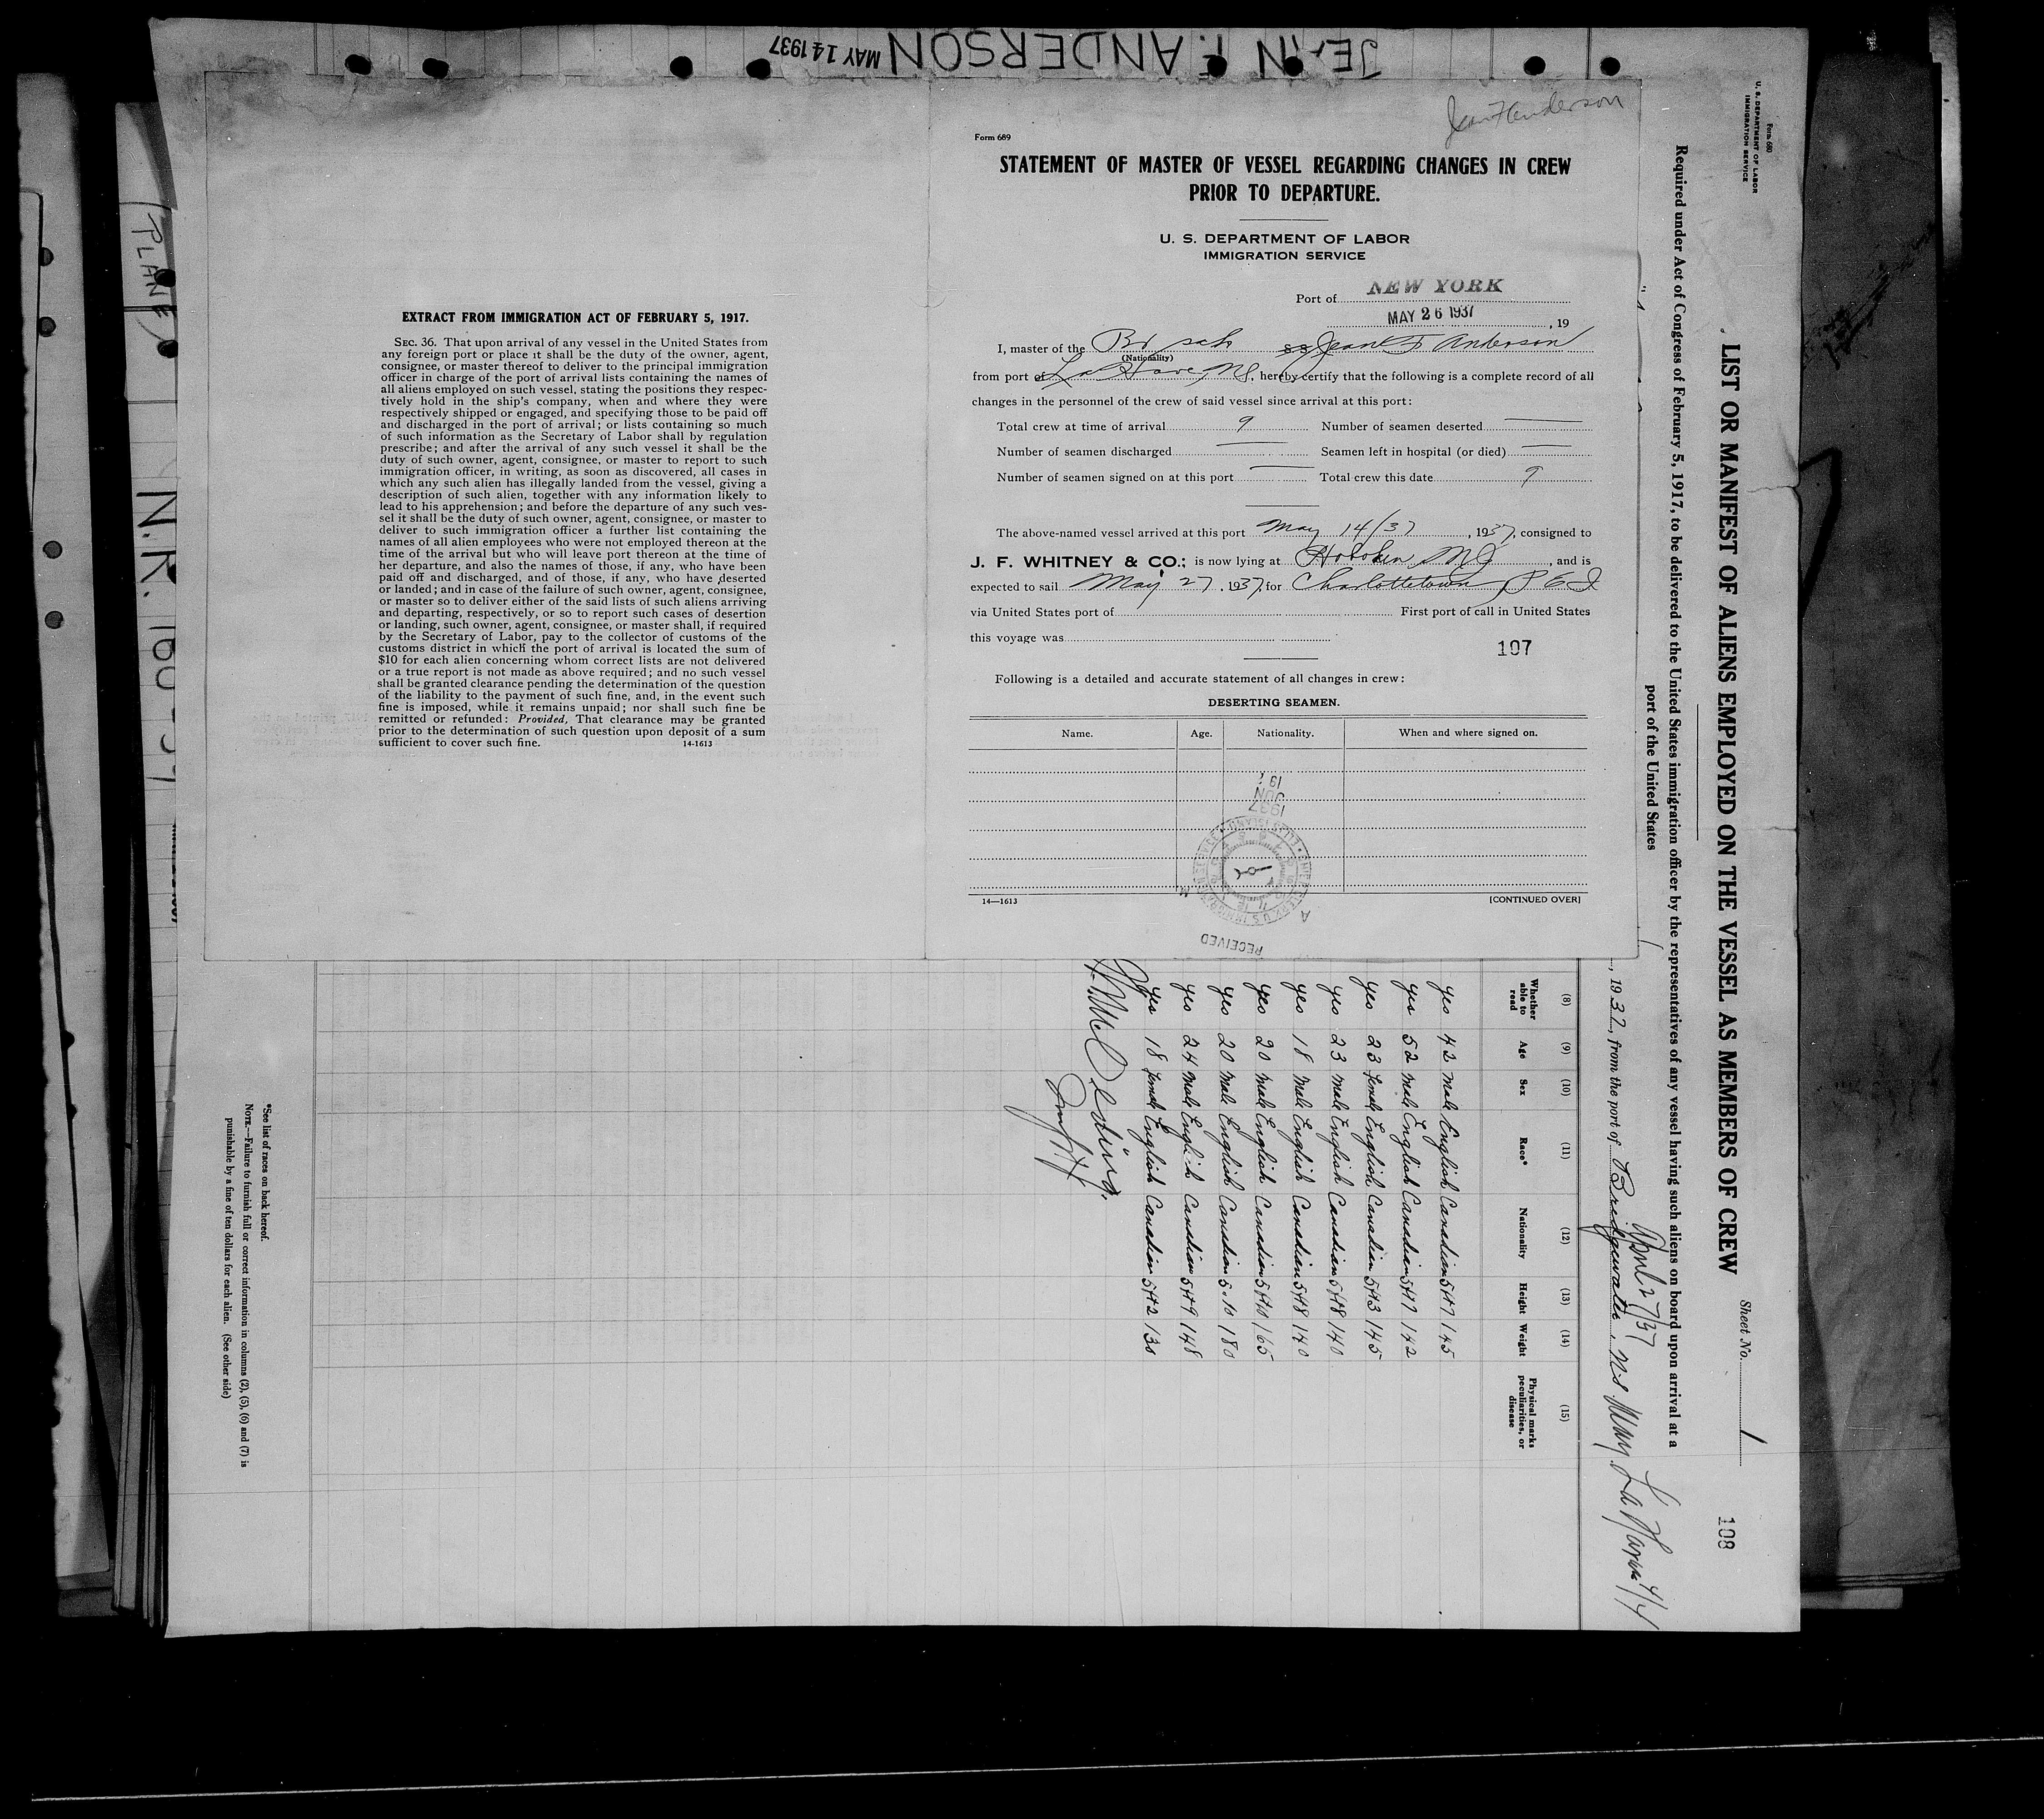 JEAN F. ANDERSON MAY 14 1937
Jean F Anderson
Form 689
STATEMENT OF MASTER OF VESSEL REGARDING CHANGES IN CREW
PRIOR TO DEPARTURE.
U. S. DEPARTMENT OF LABOR
IMMIGRATION SERVICE
Port of NEW YORK
MAY 26 1937, 19
I, master of the Br sch SS Jean F Anderson
(Nationality)
from port of La Have, NS, hereby certify that the following is a complete record of all
changes in the personnel of the crew of said vessel since arrival at this port:
Total crew at time of arrival 9 Number of seamen deserted —
Number of seamen discharged — Seamen left in hospital (or died) —
Number of seamen signed on at this port — Total crew this date 9
The above-named vessel arrived at this port May 14/37, 1937, consigned to
J. F. WHITNEY & CO.; is now lying at Hoboken NJ, and is
expected to sail May 27, 1937, for Charlottetown P E I
via United States port of First port of call in United States
this voyage was
107
Following is a detailed and accurate statement of all changes in crew:
DESERTING SEAMEN.
Name. Age. Nationality. When and where signed on.
14—1613 [CONTINUED OVER]
RECEIVED
1937 JUN
EXTRACT FROM IMMIGRATION ACT OF FEBRUARY 5, 1917.
SEC. 36. That upon arrival of any vessel in the United States from
any foreign port or place it shall be the duty of the owner, agent,
consignee, or master thereof to deliver to the principal immigration
officer in charge of the port of arrival lists containing the names of
all aliens employed on such vessel, stating the positions they respec-
tively hold in the ship's company, when and where they were
respectively shipped or engaged, and specifying those to be paid off
and discharged in the port of arrival; or lists containing so much
of such information as the Secretary of Labor shall by regulation
prescribe; and after the arrival of any such vessel it shall be the
duty of such owner, agent, consignee, or master to report to such
immigration officer, in writing, as soon as discovered, all cases in
which any such alien has illegally landed from the vessel, giving a
description of such alien, together with any information likely to
lead to his apprehension; and before the departure of any such ves-
sel it shall be the duty of such owner, agent, consignee, or master to
deliver to such immigration officer a further list containing the
names of all alien employees who were not employed thereon at the
time of the arrival but who will leave port thereon at the time of
her departure, and also the names of those, if any, who have been
paid off and discharged, and of those, if any, who have deserted
or landed; and in case of the failure of such owner, agent, consignee,
or master so to deliver either of the said lists of such aliens arriving
and departing, respectively, or so to report such cases of desertion
or landing, such owner, agent, consignee, or master shall, if required
by the Secretary of Labor, pay to the collector of customs of the
customs district in which the port of arrival is located the sum of
$10 for each alien concerning whom correct lists are not delivered
or a true report is not made as above required; and no such vessel
shall be granted clearance pending the determination of the question
of the liability to the payment of such fine, and, in the event such
fine is imposed, while it remains unpaid; nor shall such fine be
remitted or refunded: Provided, That clearance may be granted
prior to the determination of such question upon deposit of a sum
sufficient to cover such fine. 14-1613
Form 680
U. S. DEPARTMENT OF LABOR
IMMIGRATION SERVICE
Sheet No. 1
108
LIST OR MANIFEST OF ALIENS EMPLOYED ON THE VESSEL AS MEMBERS OF CREW
Required under Act of Congress of February 5, 1917, to be delivered to the United States immigration officer by the representatives of any vessel having such aliens on board upon arrival at a
port of the United States
April 27/37
, 1937, from the port of Bridgewater, N.S. May La Have
(8) (9) (10) (11) (12) (13) (14) (15)
Whether able to read Age Sex Race* Nationality Height Weight Physical marks peculiarities, or disease
yes 42 Male English Canadian 5ft7 145
yes 52 Male English Canadian 5ft7 142
yes 23 female English Canadian 5ft3 145
yes 23 Male English Canadian 5ft8 140
yes 18 Male English Canadian 5ft8 140
yes 20 Male English Canadian 5ft10 165
yes 20 Male English Canadian 5.10 180
yes 24 Male English Canadian 5ft9 148
yes 18 female English Canadian 5ft2 130
*See list of races on back hereof.
NOTE.—Failure to furnish full or correct information in columns (2), (5), (6) and (7) is
punishable by a fine of ten dollars for each alien. (See other side)
PLANE
N.R.